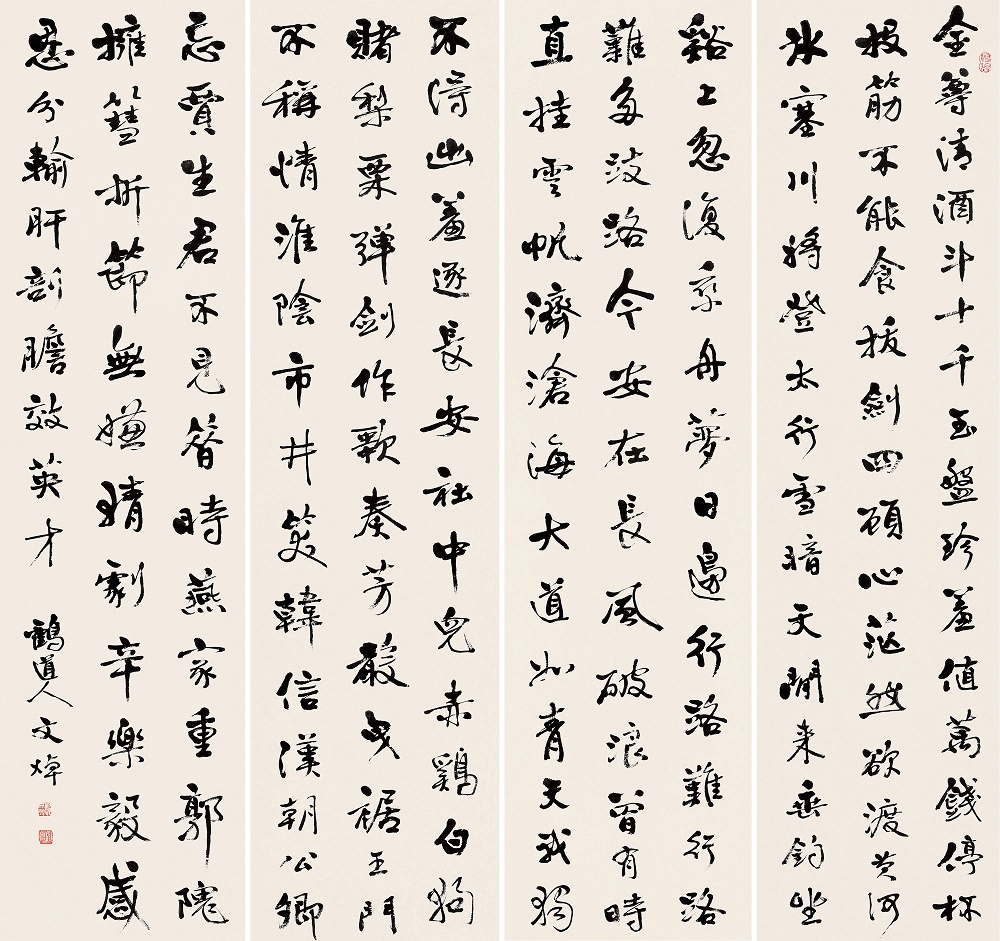 金尊清酒斗十千玉盤珍羞值萬錢停杯
投筯不能食拔劍四顧心茫然欲渡黃河
冰塞川將登太行雪暗天閒來垂釣坐
谿上忽復乘舟夢日邊行路難行路
難多歧路今安在長風破浪會有時
直挂雲帆濟滄海大道如青天我獨
不得出羞逐長安社中兒赤鷄白狗
賭梨栗彈劍作歌奏苦聲曳裾王門
不稱情淮陰市井笑韓信漢朝公卿
忌賈生君不見昔時燕家重郭隗
擁篲折節無嫌猜劇辛樂毅感
恩分輸肝剖膽效英才 鶴道人文焯